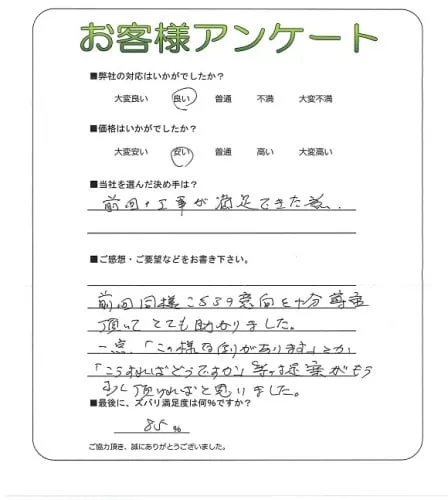 お客様アンケート
■弊社の対応はいかがでしたか？
大変良い 良い 普通 不満 大変不満
■価格はいかがでしたか？
大変安い 安い 普通 高い 大変高い
■当社を選んだ決め手は？
前回の工事が満足できた為、
■ご感想・ご要望などをお書き下さい。
前回同様こちらの意向を十分尊重
頂いてとても助かりました。
一点、「この様な例があります」とか
「こうすればどうですか」等の提案がもう
少し頂ければと思いました。
■最後に、ズバリ満足度は何％ですか？
85 %
ご協力頂き、誠にありがとうございました。